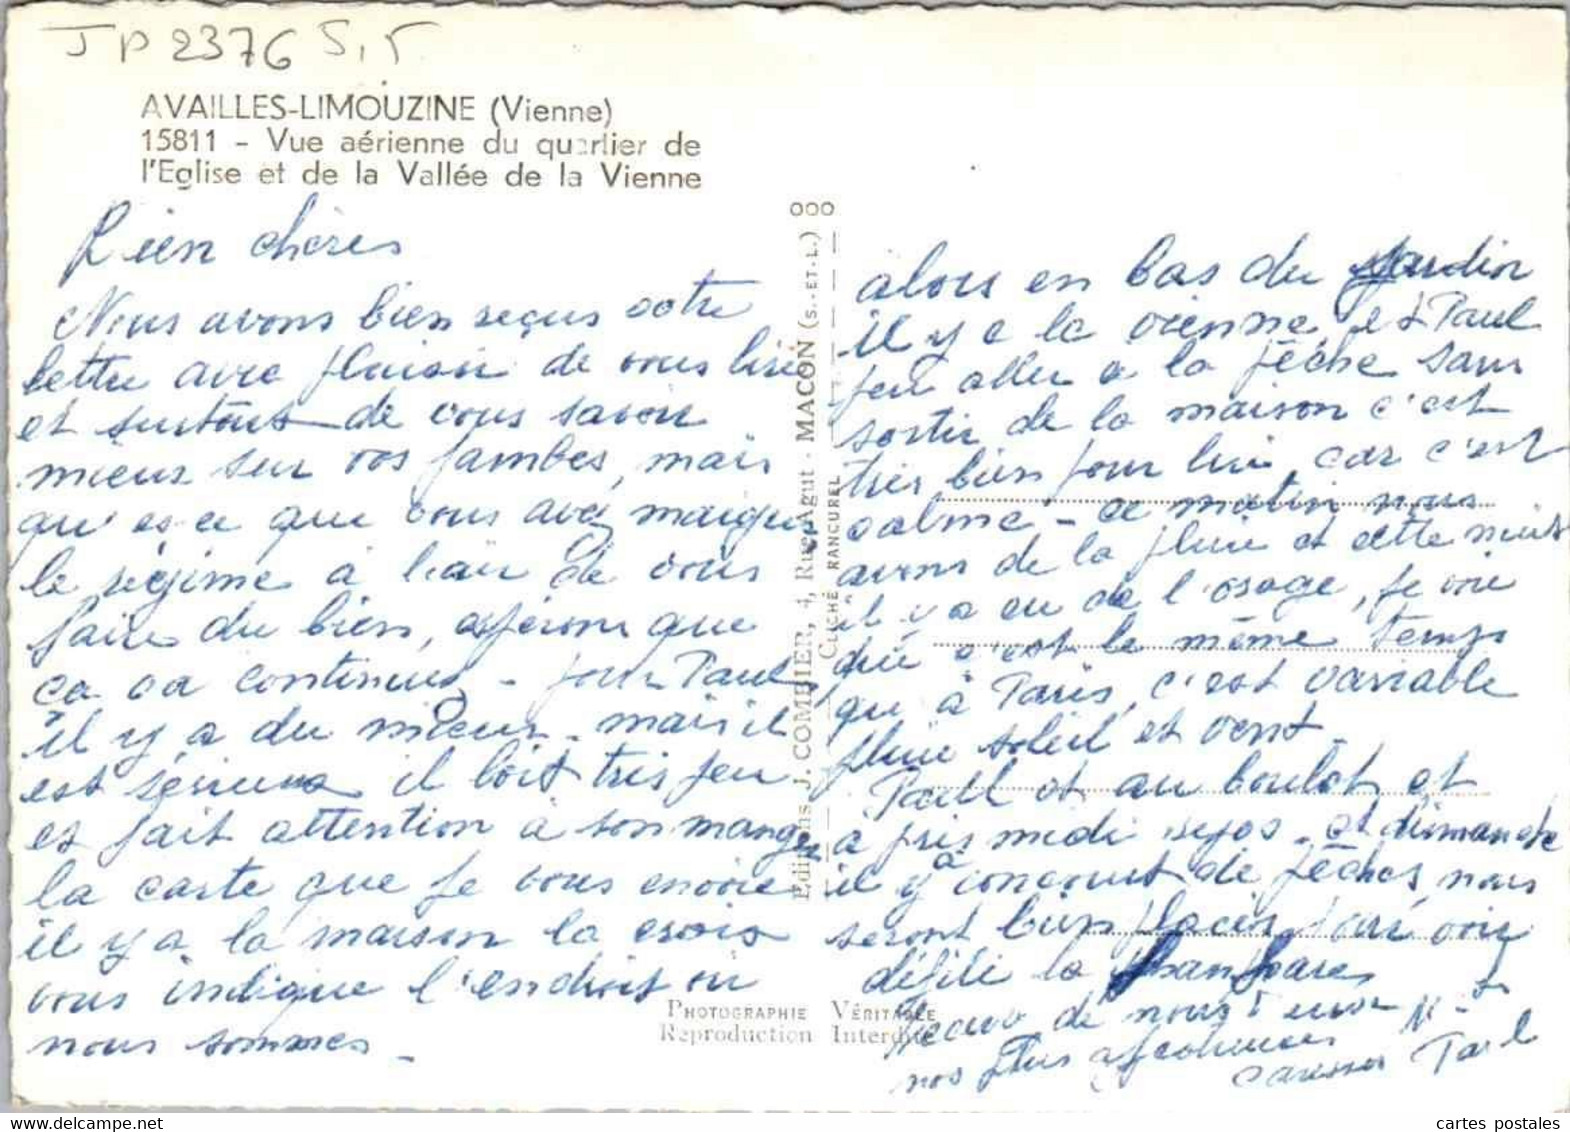 JP 2376 S, 5
AVAILLES-LIMOUZINE (Vienne)
15811 - Vue aérienne du quartier de
l'Eglise et de la Vallée de la Vienne
Rien chères
Nous avons bien reçus votre
lettre avec plaisir de vous lire
et surtout de vous savoir
mieux sur vos jambes, mais
qu'es ce que vous avez maigri
le régime à l'air de vous
faire du bien, espérons que
ça va continuer - pour Paul
il y a du mieux - mais il
est sérieux il boit très peu
et fait attention à son manger
la carte que je vous envoie
il y a la maison la croix
vous indique l'endroit où
nous sommes -
alors en bas du jardin
il y a la vienne, et Paul
peu aller a la pêche sans
sortir de la maison c'est
très bien pour lui, car c'est
calme - ce matin nous
avons de la pluie et cette nuit
il y a eu de l'orage, je voie
que c'est le même temps
qu'à Paris, c'est variable
pluie soleil et vent -
Paul et au boulot et
à près midi repos - et dimanche
il y a concourt de pêches, nous
seront bien placés pour voir
défilé la fanfare
recevo de nous deux
nos plus affectueuses
caresses Paul
000
Editions J. COMBIER, 4, Rue Agut - MACON (S.-ET-L.)
CLICHÉ RANCUREL
PHOTOGRAPHIE VÉRITABLE
Reproduction Interdite
cartes postales